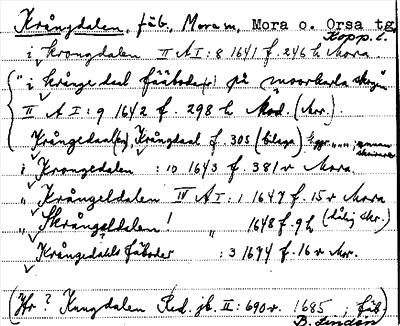 Krångdalen, fäb., Mora sn, Mora o. Orsa tg
Kopp. l.
i Krongdalen II A I : 8 1641 f. 246 h Mora.
"i Krånge daal fääbodar på moorkarla skogen
II A I : 9 1642 f. 298 h Mor.).
Krångedaal, Krångdaal f. 305 (bilaga)
i Krongedalen : 10 1643 f. 381 v Mora.
" Krångeldalen IV A I : 1 1647 f. 15 v Mora
" Skrångeldalen! " 1648 f. 9 h (dålig skr.)
Krångedahls fäboder : 3 1674 f. 16 v Mor.
(Hr ? Kungdalen Red. jb. II : 690 v. 1685, fäb.)
B. Lindén